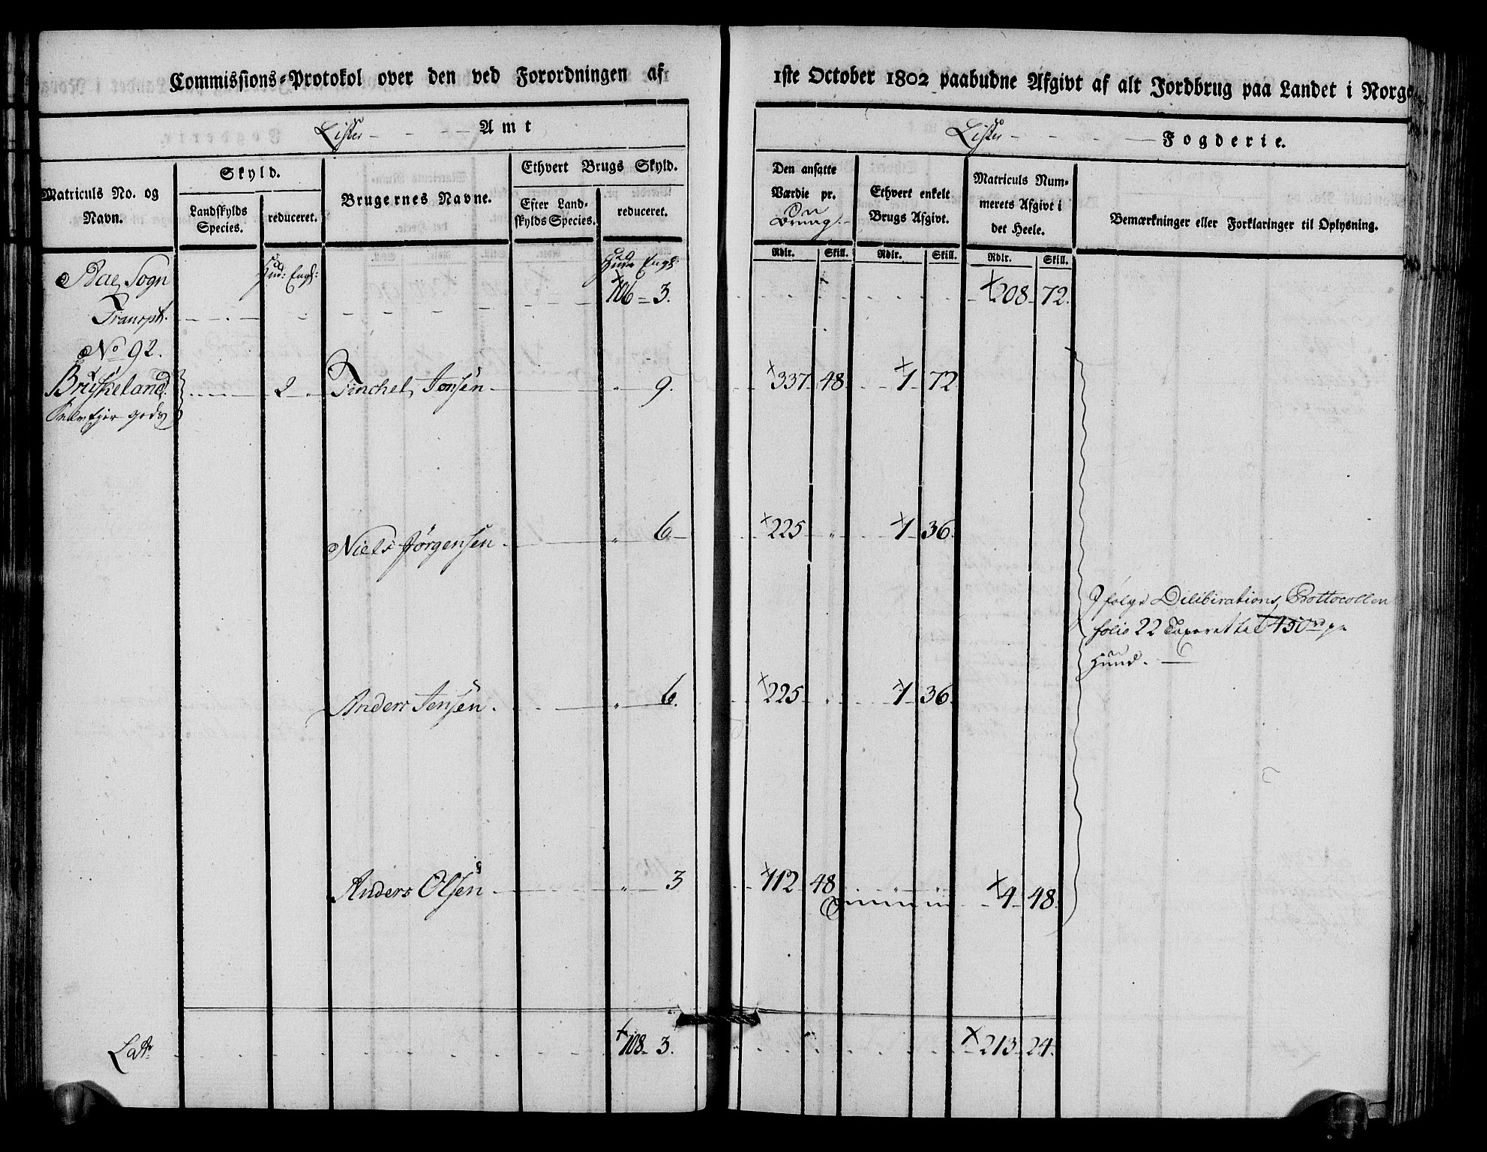 Commissions-Protokol over den ved Forordningen af 1ste October 1802 paabudne Afgivt af alt Jordbrug paa Landet i Norge
Lister Amt
Lister Fogderie.
Matriculs No. og Navn.
Skyld.
Landskylds Species.
reduceret.
Brugernes Navne.
Ethvert Brugs Skyld.
Efter Landskylds Species.
reduceret.
Den ansatte Værdie pr. Brug
Ethvert enkelt Brugs Afgivt.
Matriculs Nummerets Afgivt i det Heele.
Bemærkninger eller Forklaringer til Oplysning.
Rdlr. Skill. Rdlr. Skill. Rdlr. Skill.
Hud: Engl: Hud Engl:
Aae Sogn
Transpt. 106 3. 208 72.
No 92.
Briskeland 2 Tenchel Jonsen 9. 337 48 1 72
Selvejer gods
Niels Jørgensen 6 225 1 36
Anders Jensen 6. 225 1 36
Anders Olsen 3 112 48 4 48
I følge Deliberations Prottocollen
folio 22 Taxeret til 450 rd pr
Huud.
Lat. 108 3. 213 24.